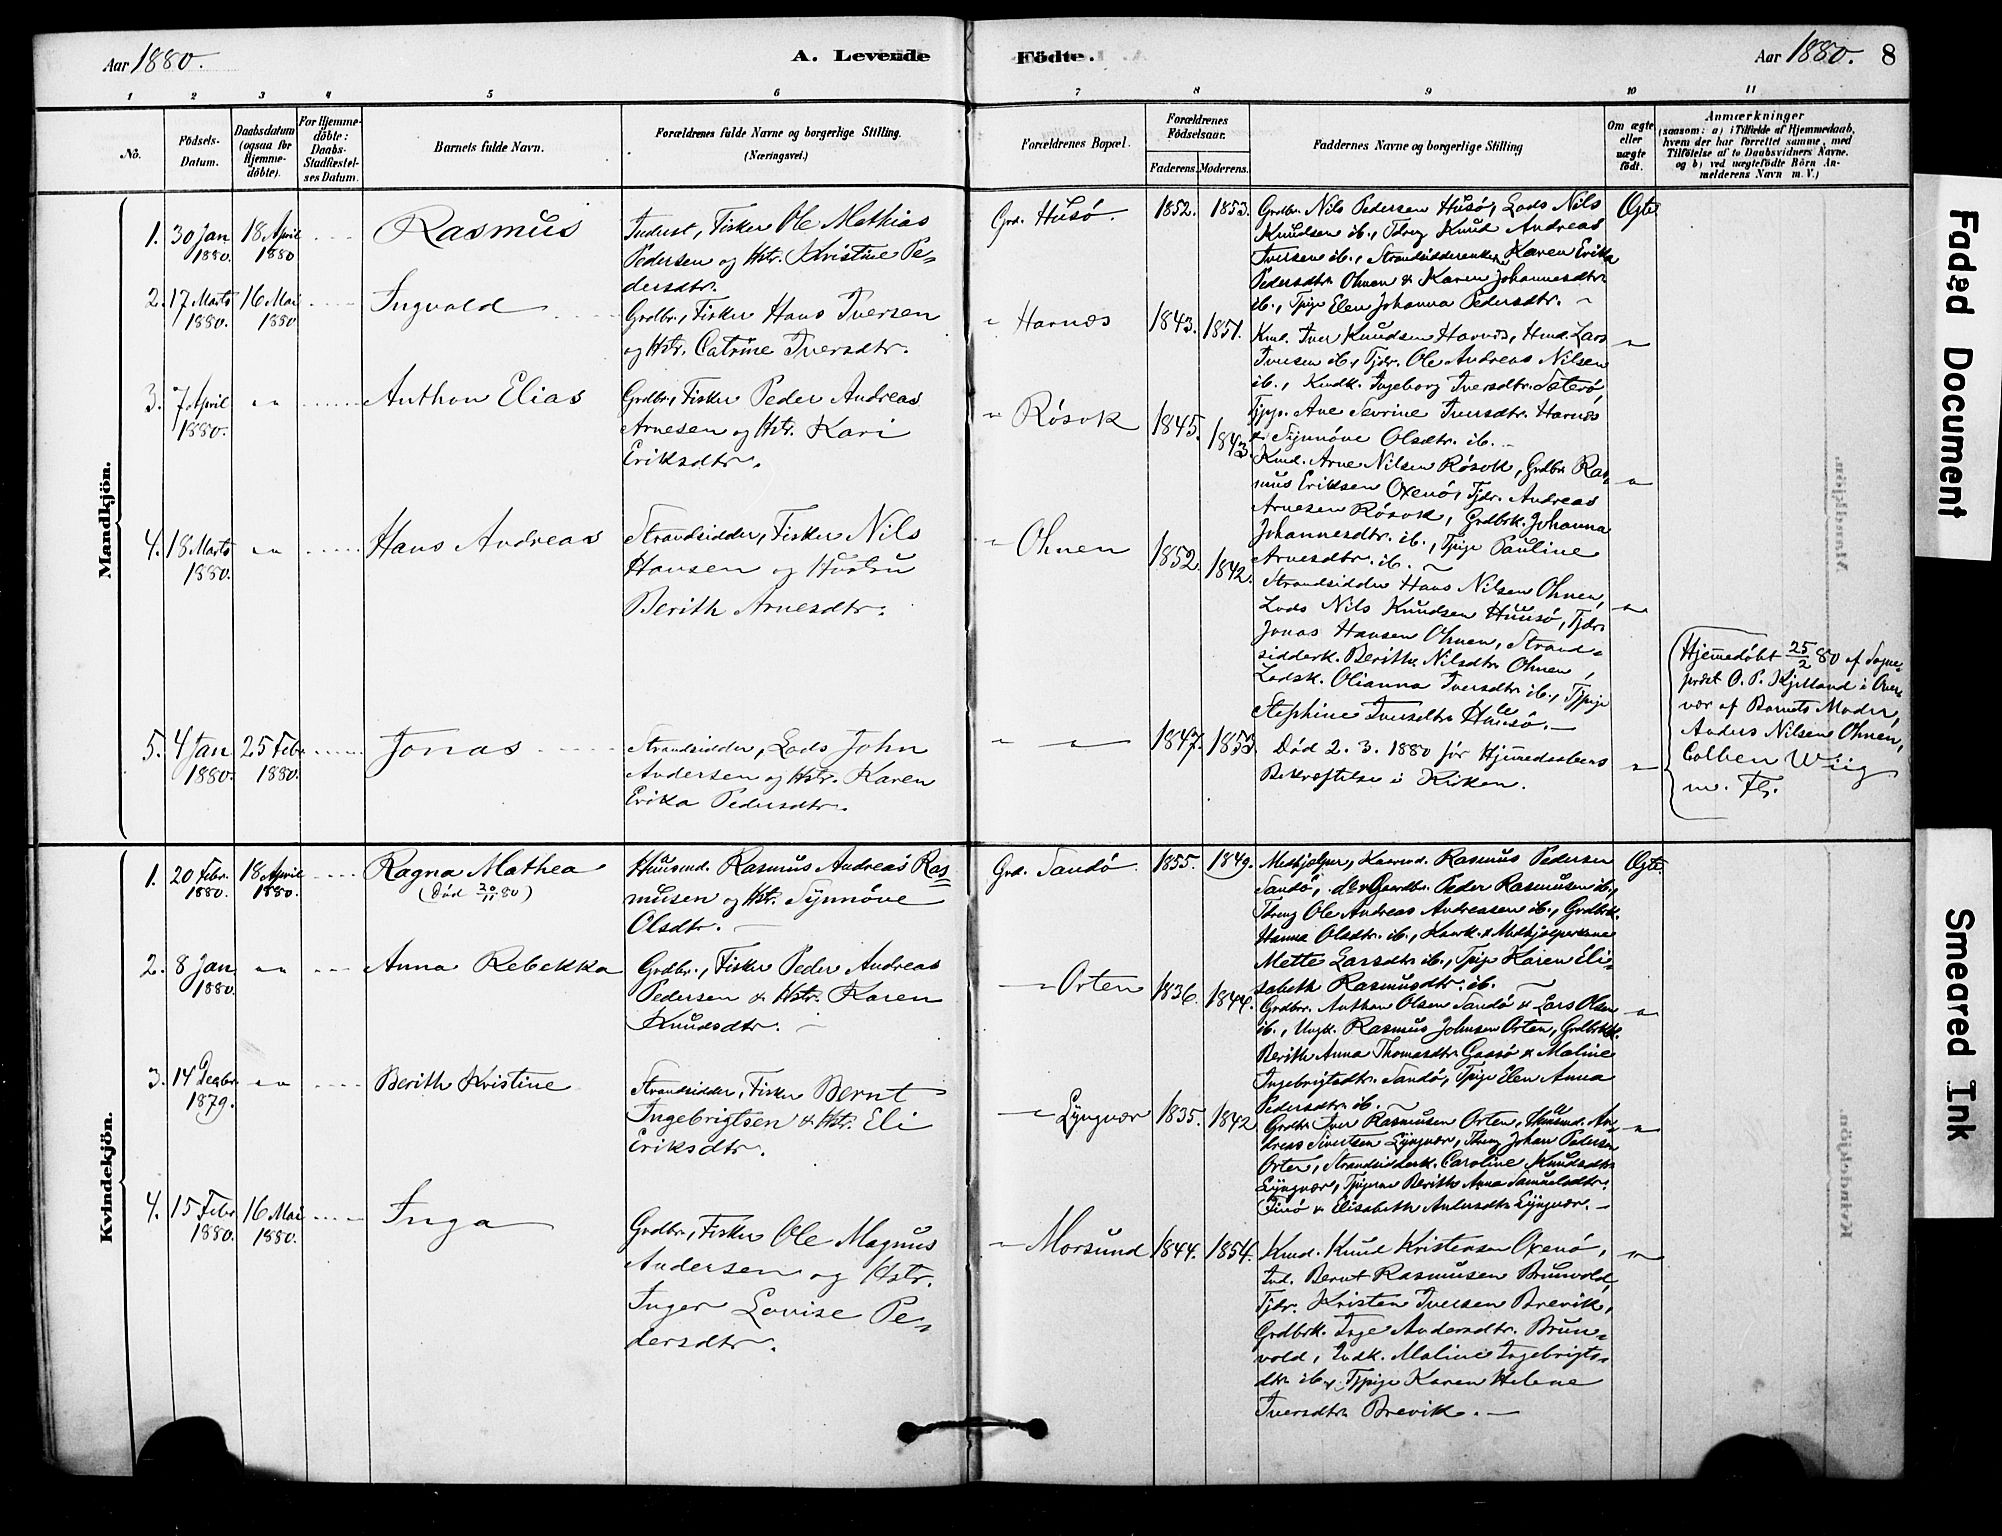 Aar 1880.
A. Levende
Födte.
Aar 1880.
8
1 2 3 4 5 6 7 8 9 10 11
No.
Födsels-
Datum.
Daabsdatum
(ogsaa for
Hjemme-
döbte).
For Hjemme-
döbte:
Daabs-
Stadfæstel-
ses Datum.
Barnets fulde Navn.
Forældrenes fulde Navne og borgerlige Stilling.
(Næringsvei.)
Forældrenes Bopæl.
Forældrenes
Födselsaar.
Faderens. Moderens.
Faddernes Navne og borgerlige Stilling
Om ægte
eller
uægte
födt.
Anmærkninger
(saasom: a) i Tilfælde af Hjemmedaab,
hvem der har forrettet samme, med
Tilföielse af to Daabsvidners Navne.
og b) ved uægtefödte Börn An-
melderens Navn m. V.)
Mandkjön.
1. 30 Jan
1880.
18 April
1880
Rasmus
Inderst, Fisker Ole Mathias
Pedersen og Hstr. Kristine Pe-
dersdtr.
Grd. Husö.
1852. 1853.
Grdbr. Nils Pedersen Husö, Lods Nils
Knudsen ib., Tdreng Knud Andreas
Iversen ib., Strandsidderenke Karen Erika
Pedersdtr. Ohnen & Karen Johannesdtr.
ib., Tpige Elen Johanna Pedersdtr. ~
Ægte
2. 17 Marts
1880.
16 Mai
1880
Ingvald
Grdbr., Fisker Hans Iversen
og Hstr. Catrine Iversdtr.
" Harnæs
1843. 1851.
Kml. Iver Knudsen Harnæs, Hmd. Lars
Iversen ib., Tjdr. Ole Andreas Nilsen
ib., Kmdk. Ingeborg Iversdtr. Säterö,
Tjpg. Ane Sevrine Iversdtr. Harnæs
& Synnöve Olsdtr. ib. -
"
3. 7 April
1880.
"
Anthon Elias
Grdbr., Fisker Peder Andreas
Arnesen og Hstr. Kari
Eriksdtr.
" Rösok
1845. 1843.
Kmd. Arne Nilsen Rösok, Grdbr. Ras-
mus Eriksen Oxenö, Tjdr. Andreas
Arnesen Rösok, Grdbrk. Johanna
Johannesdtr. ib., Tpige Pauline
Arnesdtr. ib. ~
"
4. 18 Marts
1880.
"
Hans Andreas
Strandsidder, Fisker Nils
Hansen og Hustru
Berith Arnesdtr.
" Ohnen
1852. 1842.
Strandsidder Hans Nilsen Ohnen,
Lods Nils Knudsen Huusö, Tjdr.
Jonas Hansen Ohnen, Strand-
sidderk. Berith Nilsdtr. Ohnen,
Lodsk. Olianna Iversdtr. ib., Tjpige
Stephine Iversdtr. Huusö. -
"
5. 4 Jan
1880.
25 Febr
1880.
Jonas
Strandsidder, Lods John
Andersen og Hstr. Karen
Erika Pedersdtr.
" "
1847. 1853.
Död 2. 3. 1880 för Hjemmedaabens
Bekræftelse i Kirken.
"
Hjemmedöbt 25/2 80 af Sogne-
præst O. P. Kjelland i Over-
vær af Barnets Moder,
Anders Nilsen Ohnen,
Colben Wiig
m. Fl.
Kvindekjön.
1. 20 Febr.
1880.
18 April
1880.
Ragna Mathea
(Död 20/11 80)
Huusmd. Rasmus Andreas Ras-
musen og Hstr. Synnöve
Olsdtr. -
Grd. Sandö.
1855. 1849.
Medhjælper, Kaarmd. Rasmus Pedersen
Sandö, do & Gaardbr. Peder Rasmusen ib.,
Tdreng Ole Andreas Andreasen ib., Grdbrk.
Hanna Olsdtr. ib., Kaark. & Medhjælperske
Mette Larsdtr. ib., Tpige Karen Eli-
sabeth Rasmusdtr. ib. ~
Ægte
2. 8 Jan
1880.
"
Anna Rebekka
Grdbr., Fisker Peder Andreas
Pedersen & Hstr. Karen
Knudsdtr. -
" Orten
1836. 1844.
Grdbr. Anthon Olsen Sandö & Lars Olsen
ib., Ungk. Rasmus Johnsen Orten, Grdbrkk.
Berith Anna Thomasdtr. Gaasö & Maline
Ingebrigtsdtr. Sandö, Tpige Elen Anna
Pedersdtr. ib. ~
"
3. 14 Decbr.
1879.
"
Berith Kristine
Strandsidder, Fisker Bernt
Ingebrigtsen & Hstr. Eli
Eriksdtr.
" Lyngvær
1835. 1842
Grdbr. Iver Rasmusen Orten, Huusmd. An-
dreas Sivertsen Lyngvær, Tdreng Johan Pedersen
Orten, Strandsidderk. Caroline Knudsdtr.
Lyngvær, Tpigerne Berith Anna Samuelsdtr.
Finö & Elisabeth Andersdtr. Lyngvær. -
"
4. 15 Febr
1880.
16 Mai
1880.
Inga
Grdbr., Fisker Ole Magnus
Andersen og Hstr.
Inger Lovise Pe-
dersdtr.
" Morsund
1844. 1854.
Kmd. Knud Kristensen Oxenö,
Ind. Bernt Rasmusen Brunvold,
Tjdr. Kristen Iversen Brevik,
Grdbrk. Inge Andersdtr. Brun-
vold, Indk. Maline Ingebrigts-
dtr. ib. & Tjpige Karen Helene
Iversdtr. Brevik. -
"
Faded Document
Smeared Ink